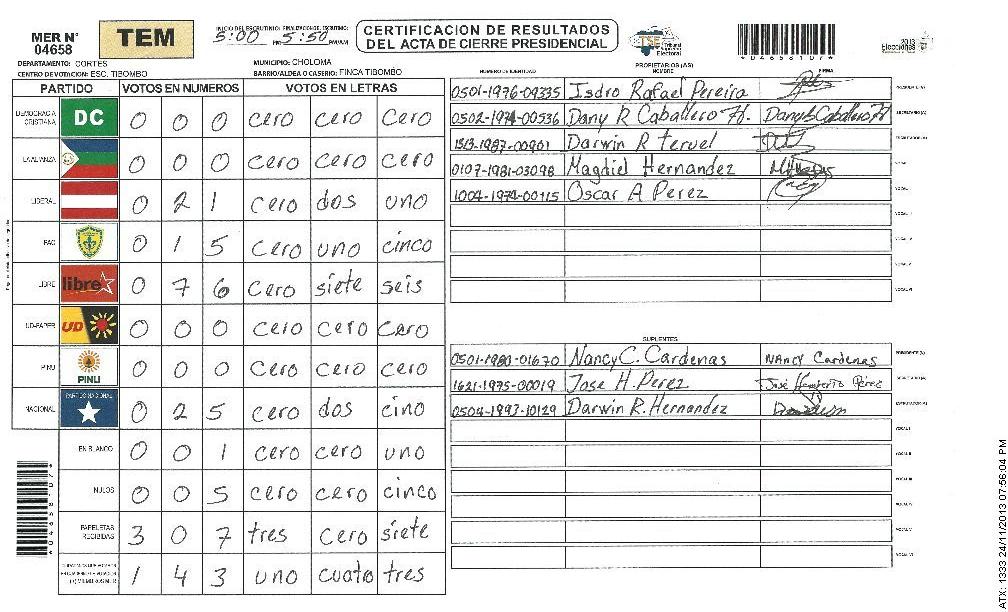 MER N° 04658
TEM
INICIO DEL ESCRUTINIO: 5:00 FINALIZACION DEL ESCRUTINIO: 5:50 PM/AM
CERTIFICACION DE RESULTADOS
DEL ACTA DE CIERRE PRESIDENCIAL
TSE Tribunal Supremo Electoral
*04658107*
2013 Elecciones
DEPARTAMENTO: CORTES
MUNICIPIO: CHOLOMA
CENTRO DE VOTACION: ESC. TIBOMBO
BARRIO/ALDEA O CASERIO: FINCA TIBOMBO
PARTIDO VOTOS EN NUMEROS VOTOS EN LETRAS
DEMOCRACIA CRISTIANA DC 0 0 0 cero cero cero
LA ALIANZA 0 0 0 cero cero cero
LIBERAL 0 2 1 cero dos uno
PAC 0 1 5 cero uno cinco
LIBRE libre 0 7 6 cero siete seis
UD-FAPER UD 0 0 0 cero cero cero
PINU PINU 0 0 0 cero cero cero
NACIONAL PARTIDO NACIONAL 0 2 5 cero dos cino
EN BLANCO 0 0 1 cero cero uno
NULOS 0 0 5 cero cero cinco
PAPELETAS RECIBIDAS 3 0 7 tres cero siete
1 4 3 uno cuato tres
PROPIETARIOS (AS)
NUMERO DE IDENTIDAD NOMBRE FIRMA
0501-1976-09335 Isdro Rafael Pereira
0502-1974-00536 Dany R Caballero H. Dany R Caballero H
1313-1987-00901 Darwin R Teruel
0107-1981-03098 Magdiel Hernandez
1004-1974-00115 Oscar A Perez
SUPLENTES
0501-1980-01670 Nancy C. Cardenas NANCY Cardenas
1621-1975-00019 Jose H. Perez José Humberto Pérez
0504-1993-10129 Darwin R. Hernandez
ATX: 1333 24/11/2013 07:56:04 PM